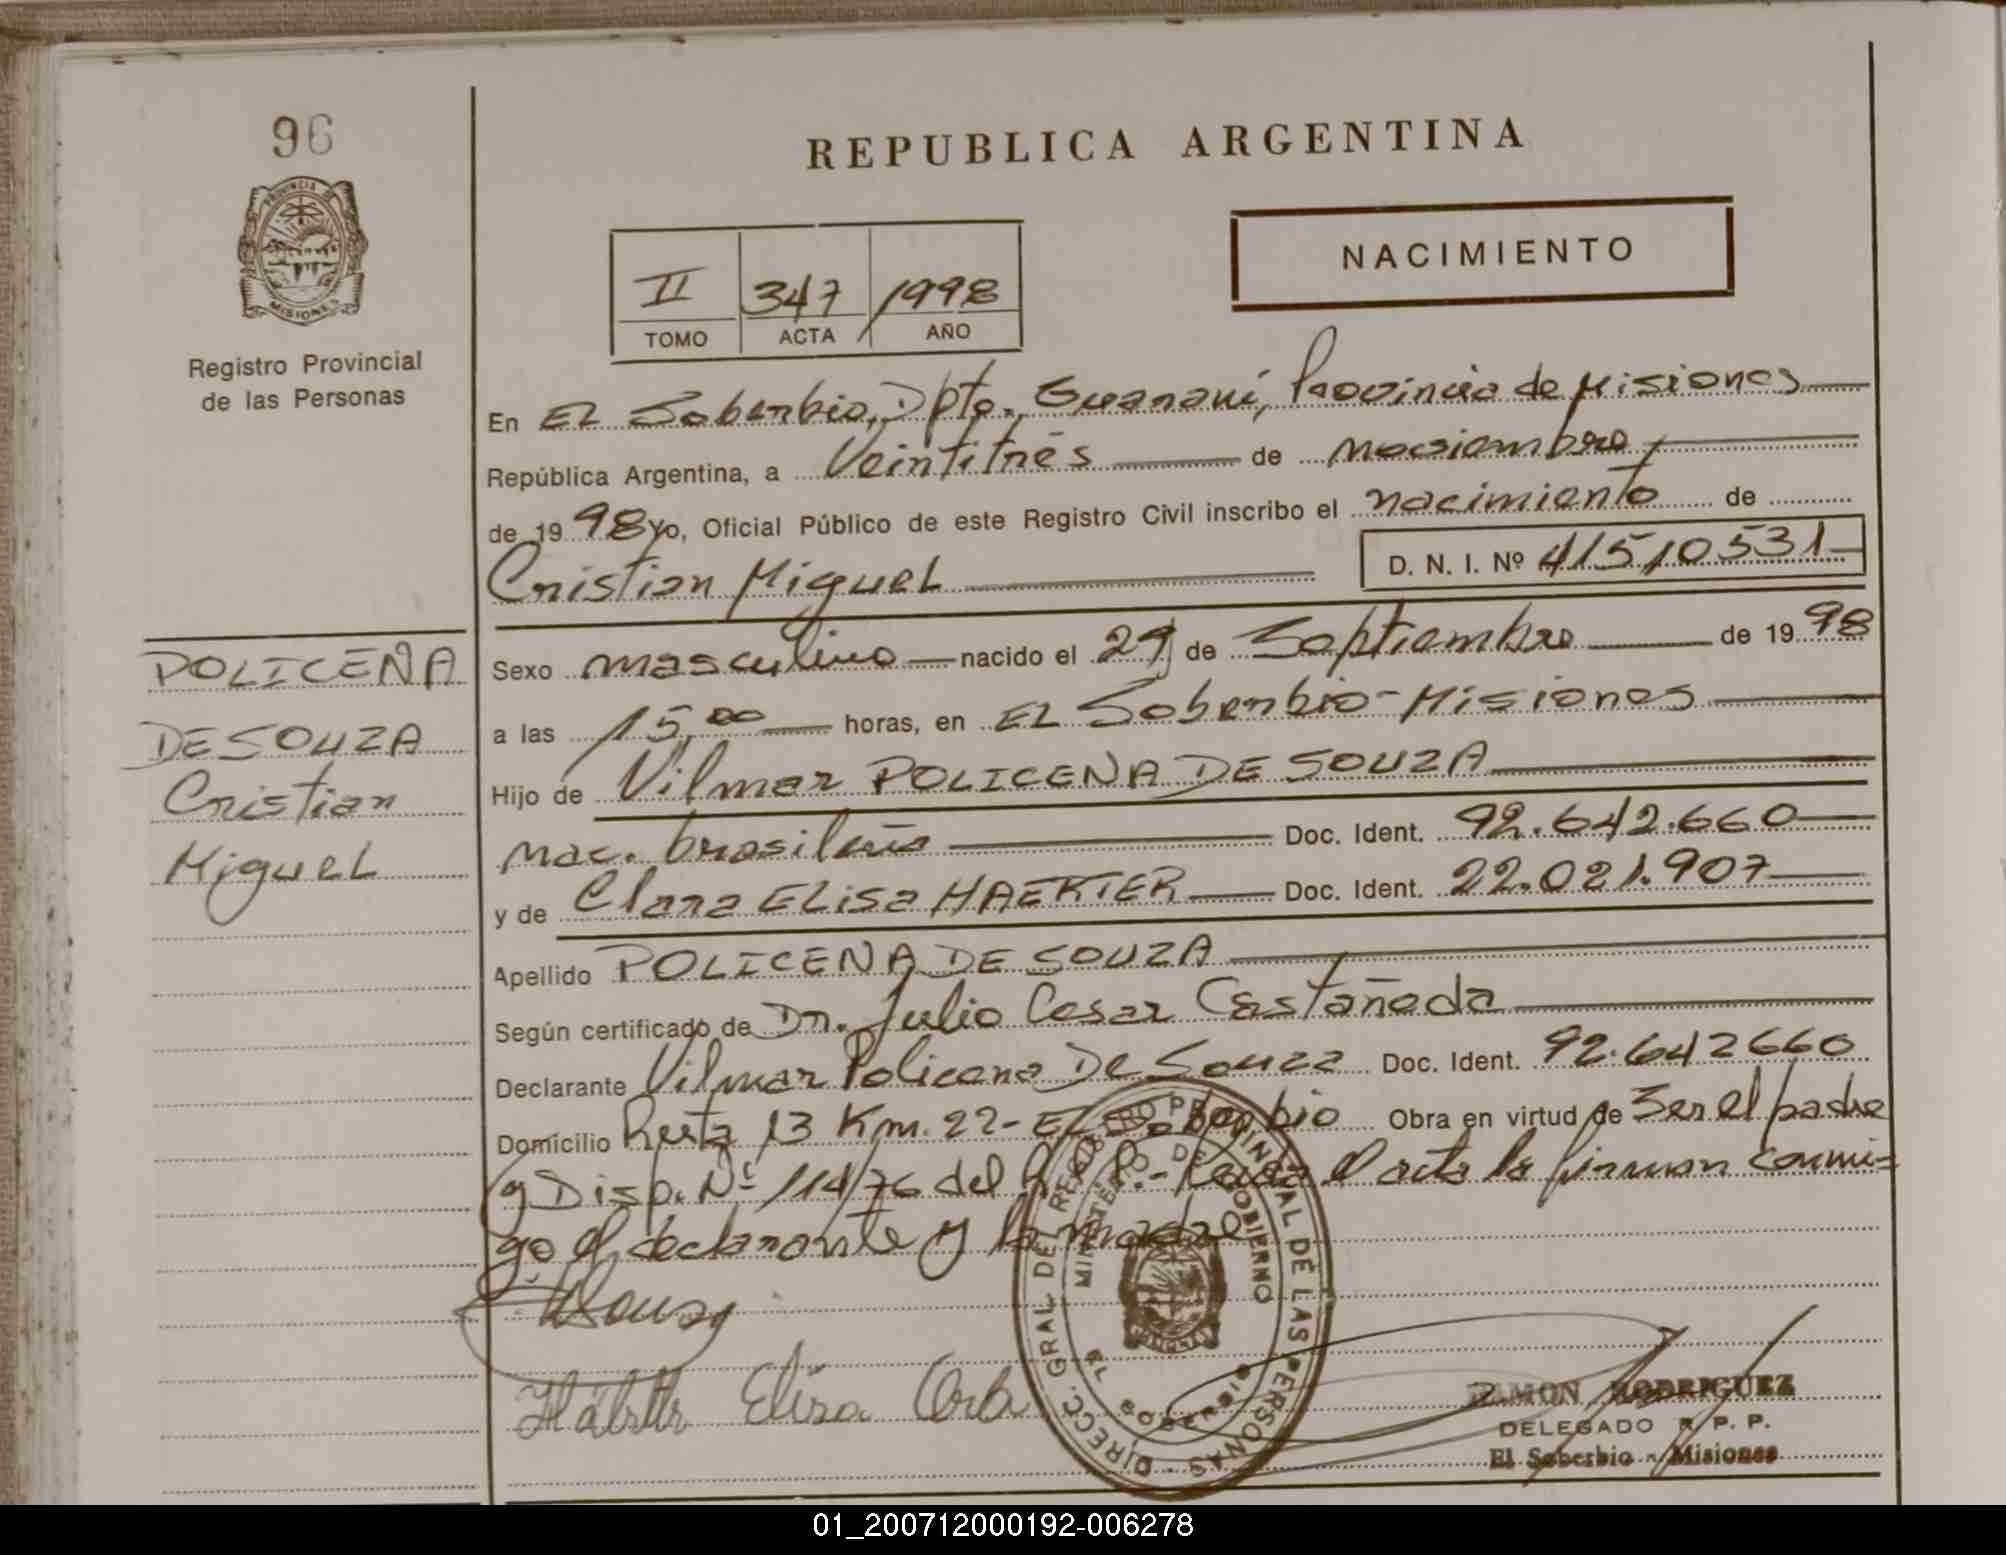 96
PROVINCIA DE
MISIONES
Registro Provincial
de las Personas
POLICENA
DE SOUZA
Cristian
Miguel
REPUBLICA ARGENTINA
NACIMIENTO
II 347 1998
TOMO ACTA AÑO
En El Soberbio, Dpto. Guaraní, Provincia de Misiones
República Argentina, a Veintitrés de noviembre
de 1998 Yo, Oficial Público de este Registro Civil inscribo el nacimiento de
Cristian Miguel D. N. I. Nº 41510531
Sexo masculino nacido el 29 de Septiembre de 1998
a las 15,00 horas, en El Soberbio - Misiones
Hijo de Vilmar POLICENA DE SOUZA
nac. brasileña Doc. Ident. 92.642.660
y de Clara Elisa HAEKTER Doc. Ident. 22.021.907
Apellido POLICENA DE SOUZA
Según certificado de Dr. Julio Cesar Castañeda
Declarante Vilmar Policena De Souza Doc. Ident. 92.642660
Domicilio Ruta 13 Km. 22- El Soberbio Obra en virtud de Ser el padre
y Disp. Nº 114/76 del R.P.P.- el acta la firman conmi=
go el declarante y la madre
DIRECC. GRAL DEL REGISTRO PROVINCIAL DE LAS PERSONAS
MINISTERIO DE GOBIERNO
EL SOBERBIO
Elisa
RAMON RODRIGUEZ
DELEGADO R. P. P.
El Soberbio - Misiones
01_200712000192-006278